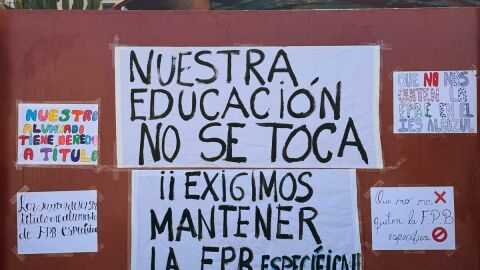 NUESTRA
EDUCACIÓN
NO SE TOCA
¡¡EXIGIMOS
MANTENER
LA FPB ESPECÍFICA!!
NUESTRO
ALUMNADO
TIENE DERECHO
A TÍTULO
de FPB específica
QUE NO NOS
QUITEN LA
EN EL
IES ALJAZUL
Que no me
quiten la FPB
específica